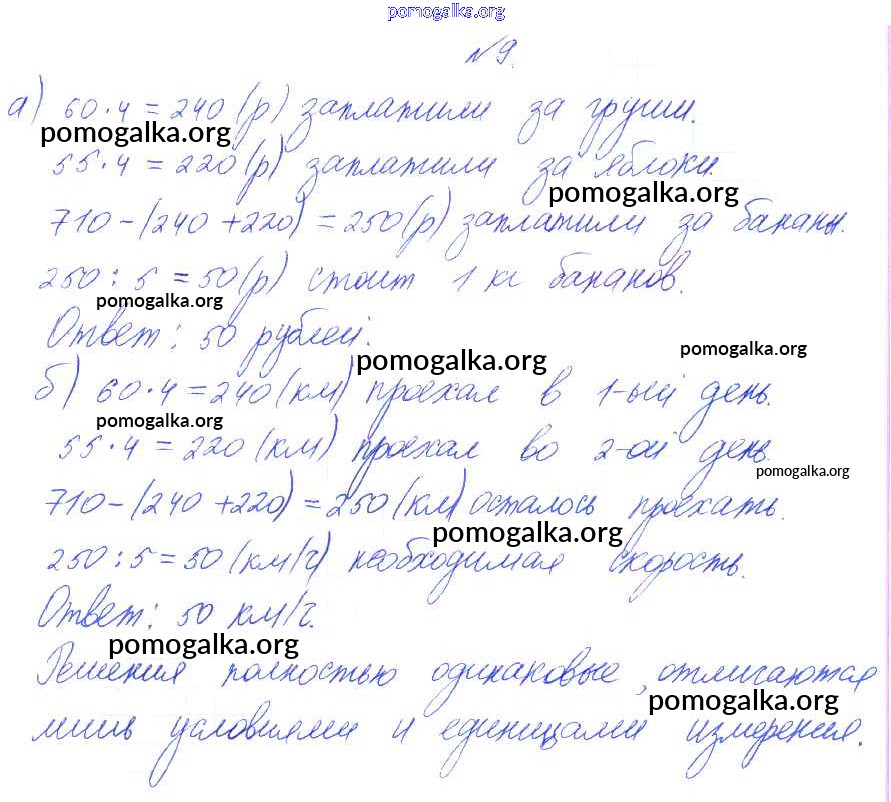 pomogalka.org
№9.
а) 60·4 = 240 (р) заплатили за груши.
pomogalka.org
55·4 = 220 (р) заплатили за яблоки.
pomogalka.org
710-(240+220) = 250 (р) заплатили за бананы.
250 : 5 = 50 (р) стоит 1 кг бананов.
pomogalka.org
Ответ: 50 рублей.
pomogalka.org pomogalka.org
б) 60·4 = 240 (км) проехал в 1-ый день.
pomogalka.org
55·4 = 220 (км) проехал во 2-ой день.
pomogalka.org
710-(240+220) = 250 (км) осталось проехать.
pomogalka.org
250 : 5 = 50 (км/г) необходимая скорость.
Ответ: 50 км/г.
pomogalka.org
Решения полностью одинаковые, отличаются
pomogalka.org
лишь условиями и единицами измерения.